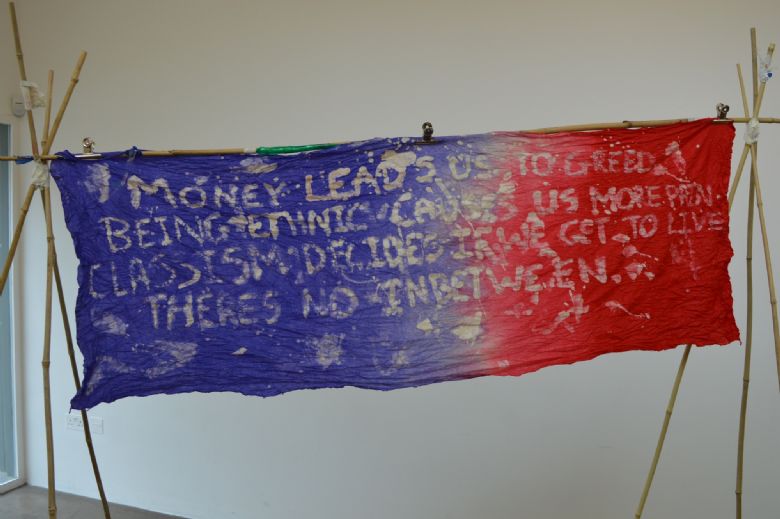 MONEY LEADS US TO GREED
BEING ETHNIC CAUSES US MORE PAIN
CLASSISM DECIDES IF WE GET TO LIVE
THERES NO INBETWEEN.